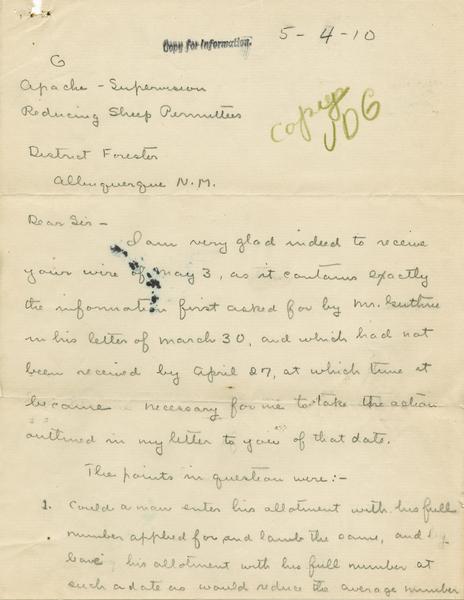 Copy for Information.
5-4-10
G
Apache - Supervision
Reducing Sheep Permittees
copy
JDG
District Forester
Albuquerque N.M.
Dear Sir -
I am very glad indeed to receive
your wire of May 3, as it contains exactly
the information first asked for by Mr. Guthrie
in his letter of March 30, and which had not
been received by April 27, at which time it
became necessary for me to take the action
outlined in my letter to you of that date.
The points in question were:-
1. Could a man enter his allotment with his full
number applied for and lamb the same, and
leave his allotment with his full number at
such a date as would reduce the average number